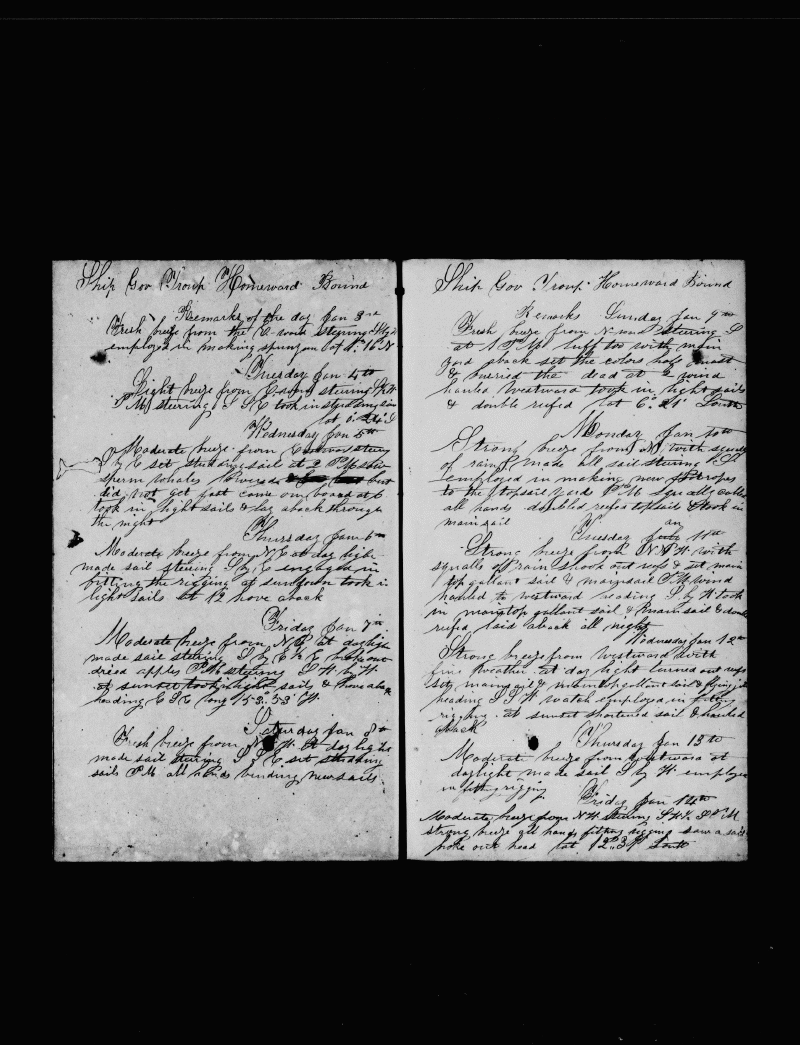 Ship Gov Troup Homeward Bound
Remarks of the day Jan 3rd
Fresh breeze from the E ward steering
employed in making spunyon Lat 4° 16 N
Tuesday Jan 4th
Light breeze from E ward steering
PM steering S E took in studdingsails
Lat
Wednesday Jan 5th
Moderate breeze from E
by E set studdingsails at 2 PM saw
sperm whales lowered but
did not get fast come on board at 6
took in light sails & lay aback through
the night
Thursday Jan 6th
Moderate breeze from N E at day light
made sail steering S by E engaged in
fitting the rigging at sundown took in
light sails at 12 hove aback
Friday Jan 7th
Moderate breeze from N E at daylight
made sail steering S by E & E broke out
dried apples PM steering S W by W
at sunset took in light sails & hove aback
heading E S E long 153.53 W
Saturday Jan 8th
Fresh breeze from N W At day light
made sail steering S E set studding
sails PM all hands bending new sails
Ship Gov Troup Homeward Bound
Remarks Sunday Jan 9th
Fresh breeze from N ward steering S
at 1 PM luff too with main
yard aback set the colors half mast
& buried the dead at 2 wind
hauled Westward took in light sails
& double reefed Lat 6° 21 South
Monday Jan 10th
Strong breeze from N with squalls
of rain made all sail steering
employed in making new footropes
to the topsail yards PM Squally called
all hands doubled reefes topsails & took in
mainsail
Tuesday Jan 11th
Strong breeze from N W with
squalls of rain shook out reefs & set main
top gallant sail & mainsail PM wind
hauled to westward heading S by W took
in maintop gallant sail & mainsail & double
reefed laid aback all night
Wednesday Jan 12th
Strong breeze from Westward with
fine weather at day light turned out reefs
set mainsail & maintopgallant sail & flying jib
heading S S W watch employed in fitting
rigging at sunset shortened sail & hauled
aback
Thursday Jan 13th
Moderate breeze from westward at
daylight made sail S by W employed
in fitting rigging
Friday Jan 14th
Moderate breeze from N W Steering PM
strong breeze all hands fitting rigging saw a sail
broke out head Lat South